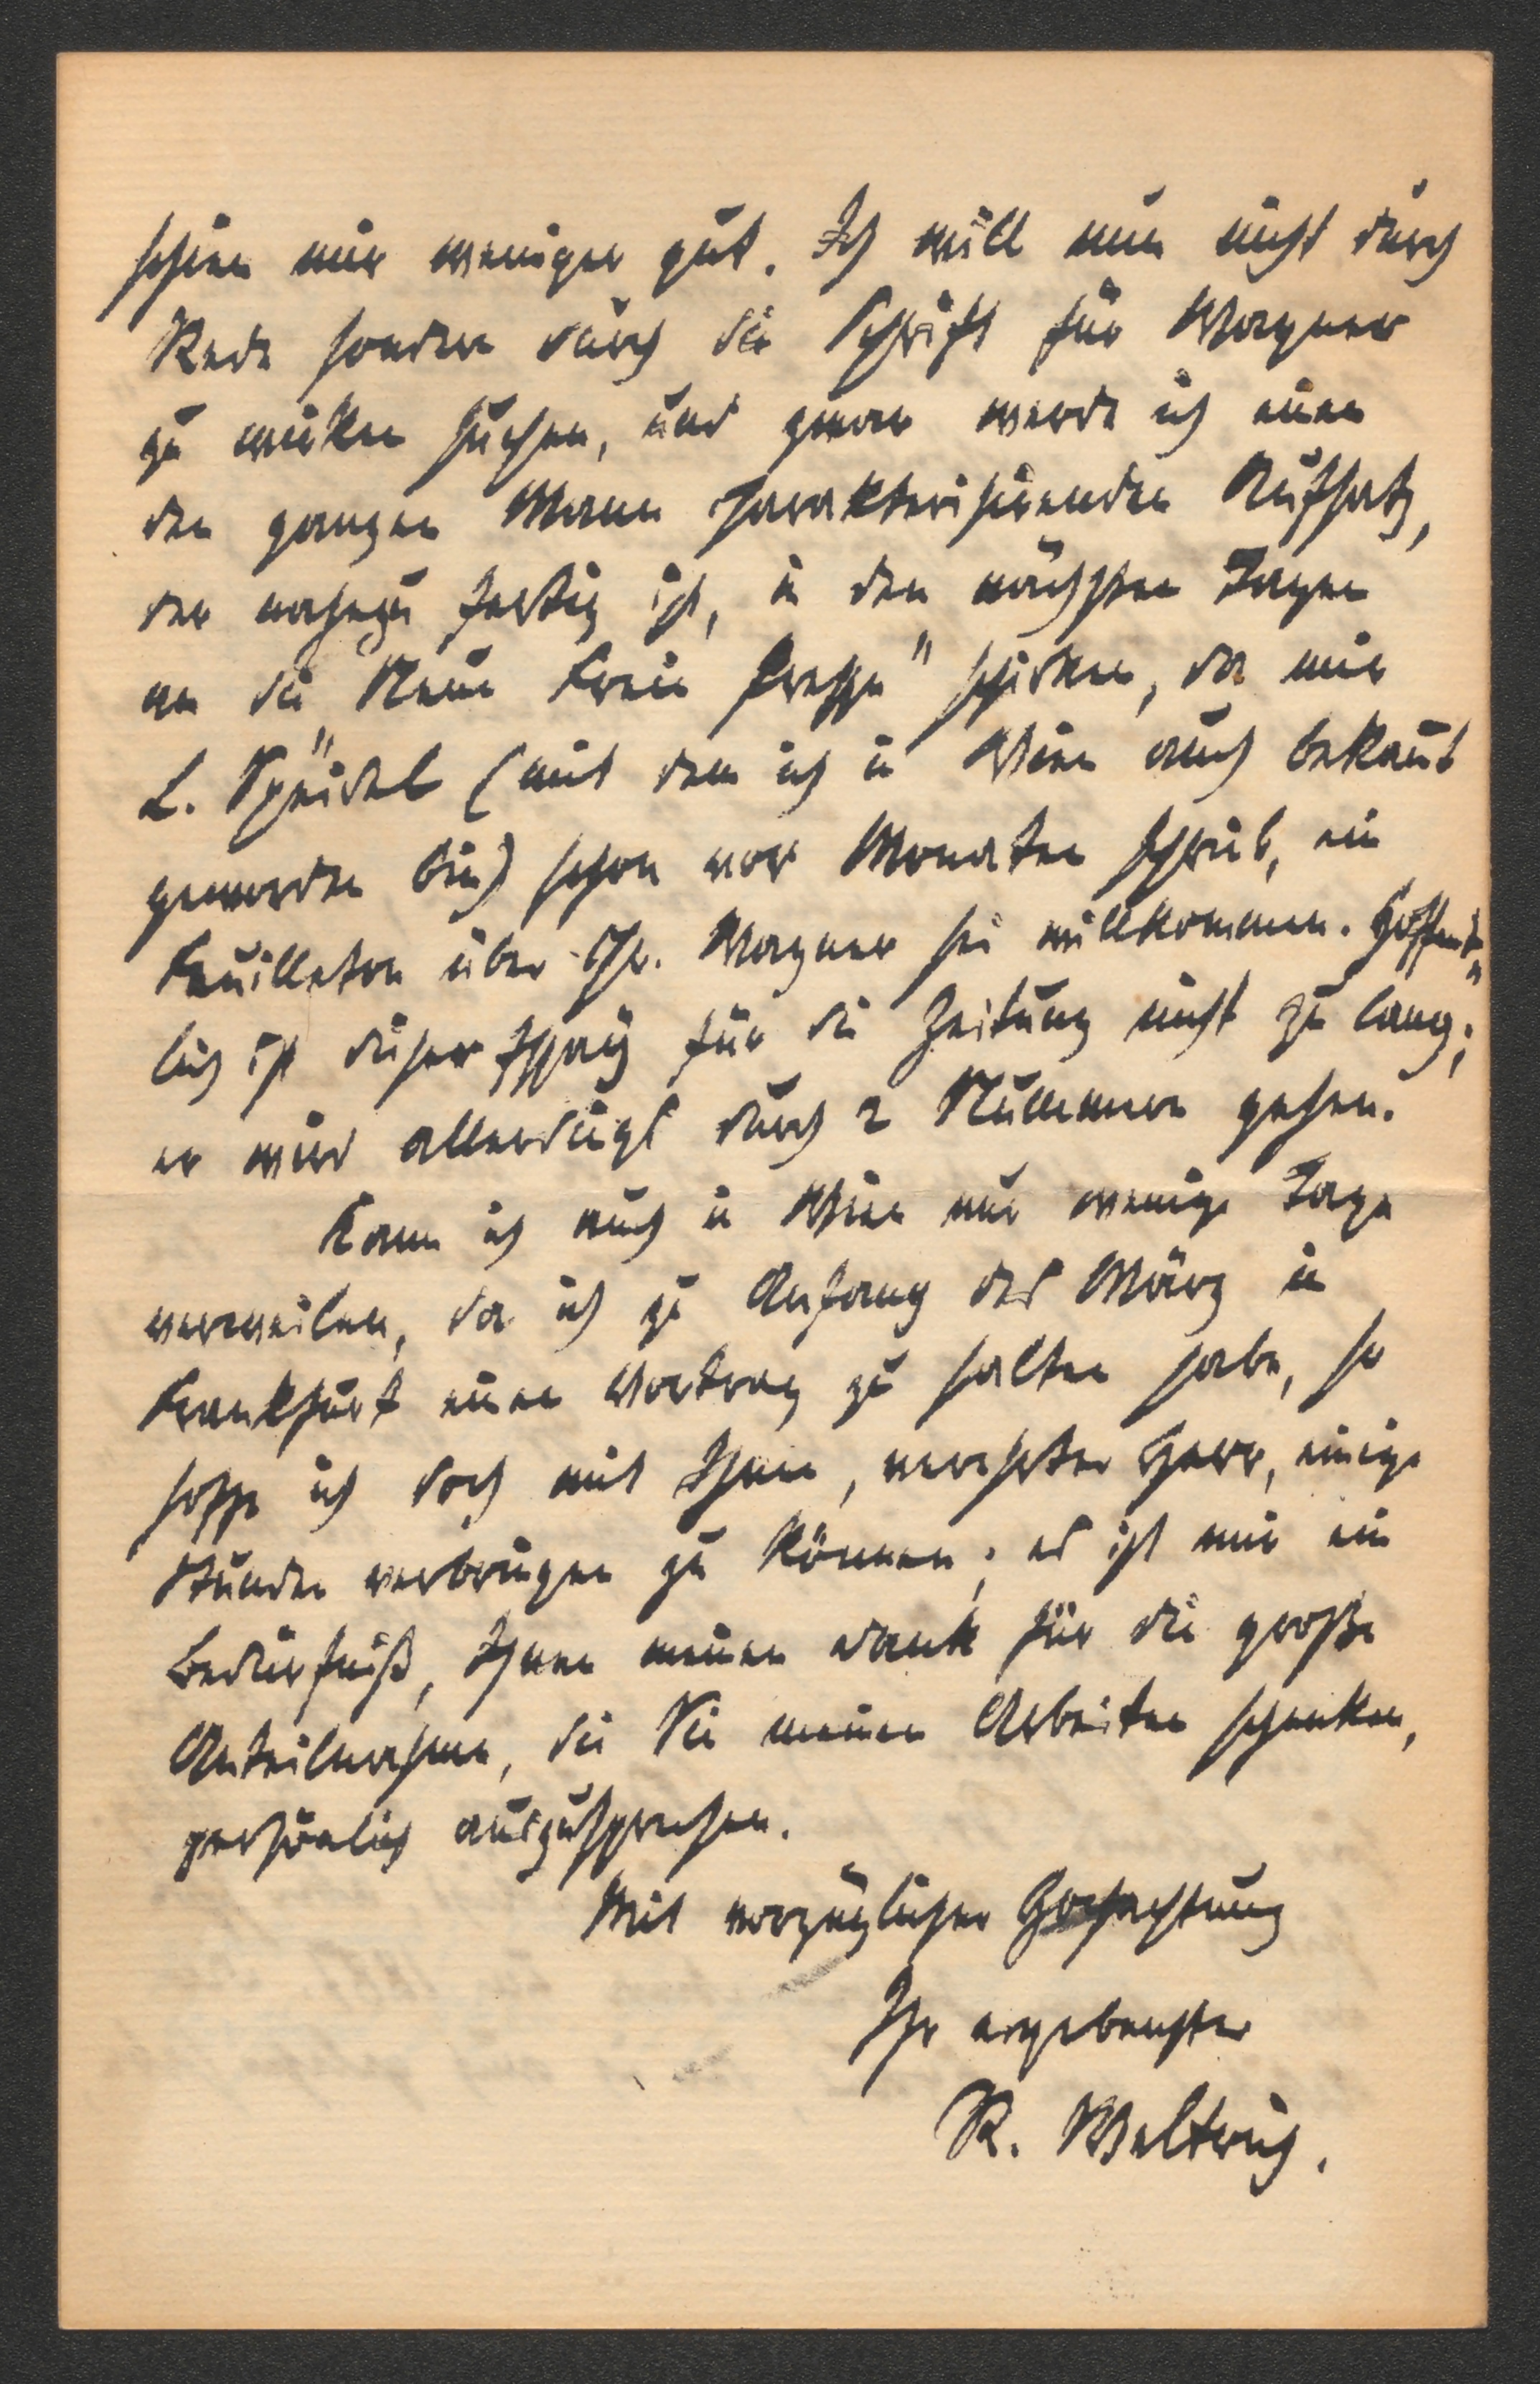 schien mir weniger gut. Ich will nun nicht durch
Rede sondern durch die Schrift für Wagner
zu wirken suchen, und zwar werde ich einen
den ganzen Mann charakterisirenden Aufsatz,
der nahezu fertig ist, in den nächsten Tagen
an die „Neue Freie Presse" schicken, da mir
L. Speidel (mit dem ich in Wien auch bekannt
geworden bin) schon vor Monaten schrieb, ein
Feuilleton über Chr. Wagner sei willkommen. Hoffent-
lich ist dieser Essay für die Zeitung nicht zu lang;
er wird allerdings durch 2 Nummern gehen.
Kann ich auch in Wien nur wenige Tage
verweilen, da ich zu Anfang des März in
Frankfurt einen Vortrag zu halten habe, so
hoffe ich doch mit Ihnen, verehrter Herr, einige
Stunden verbringen zu können; es ist mir ein
Bedürfniß, Ihnen meinen Dank für die große
Anteilnahme, die Sie meinen Arbeiten schenken,
persönlich auszusprechen.
Mit vorzüglicher Hochachtung
Ihr ergebenster
R. Weltrich.